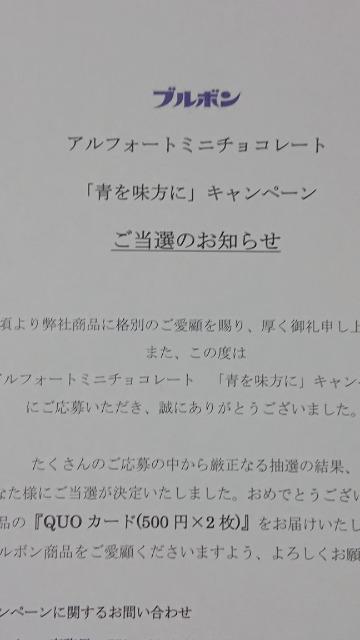 ブルボン
アルフォートミニチョコレート
「青を味方に」キャンペーン
ご当選のお知らせ
頃より弊社商品に格別のご愛顧を賜り、厚く御礼申し上
また、この度は
アルフォートミニチョコレート 「青を味方に」キャン
にご応募いただき、誠にありがとうございました。
たくさんのご応募の中から厳正なる抽選の結果、
なた様にご当選が決定いたしました。おめでとうござい
品の『QUOカード(500円×2枚)』をお届けいたし
ルボン商品をご愛顧くださいますよう、よろしくお願
ンペーンに関するお問い合わせ